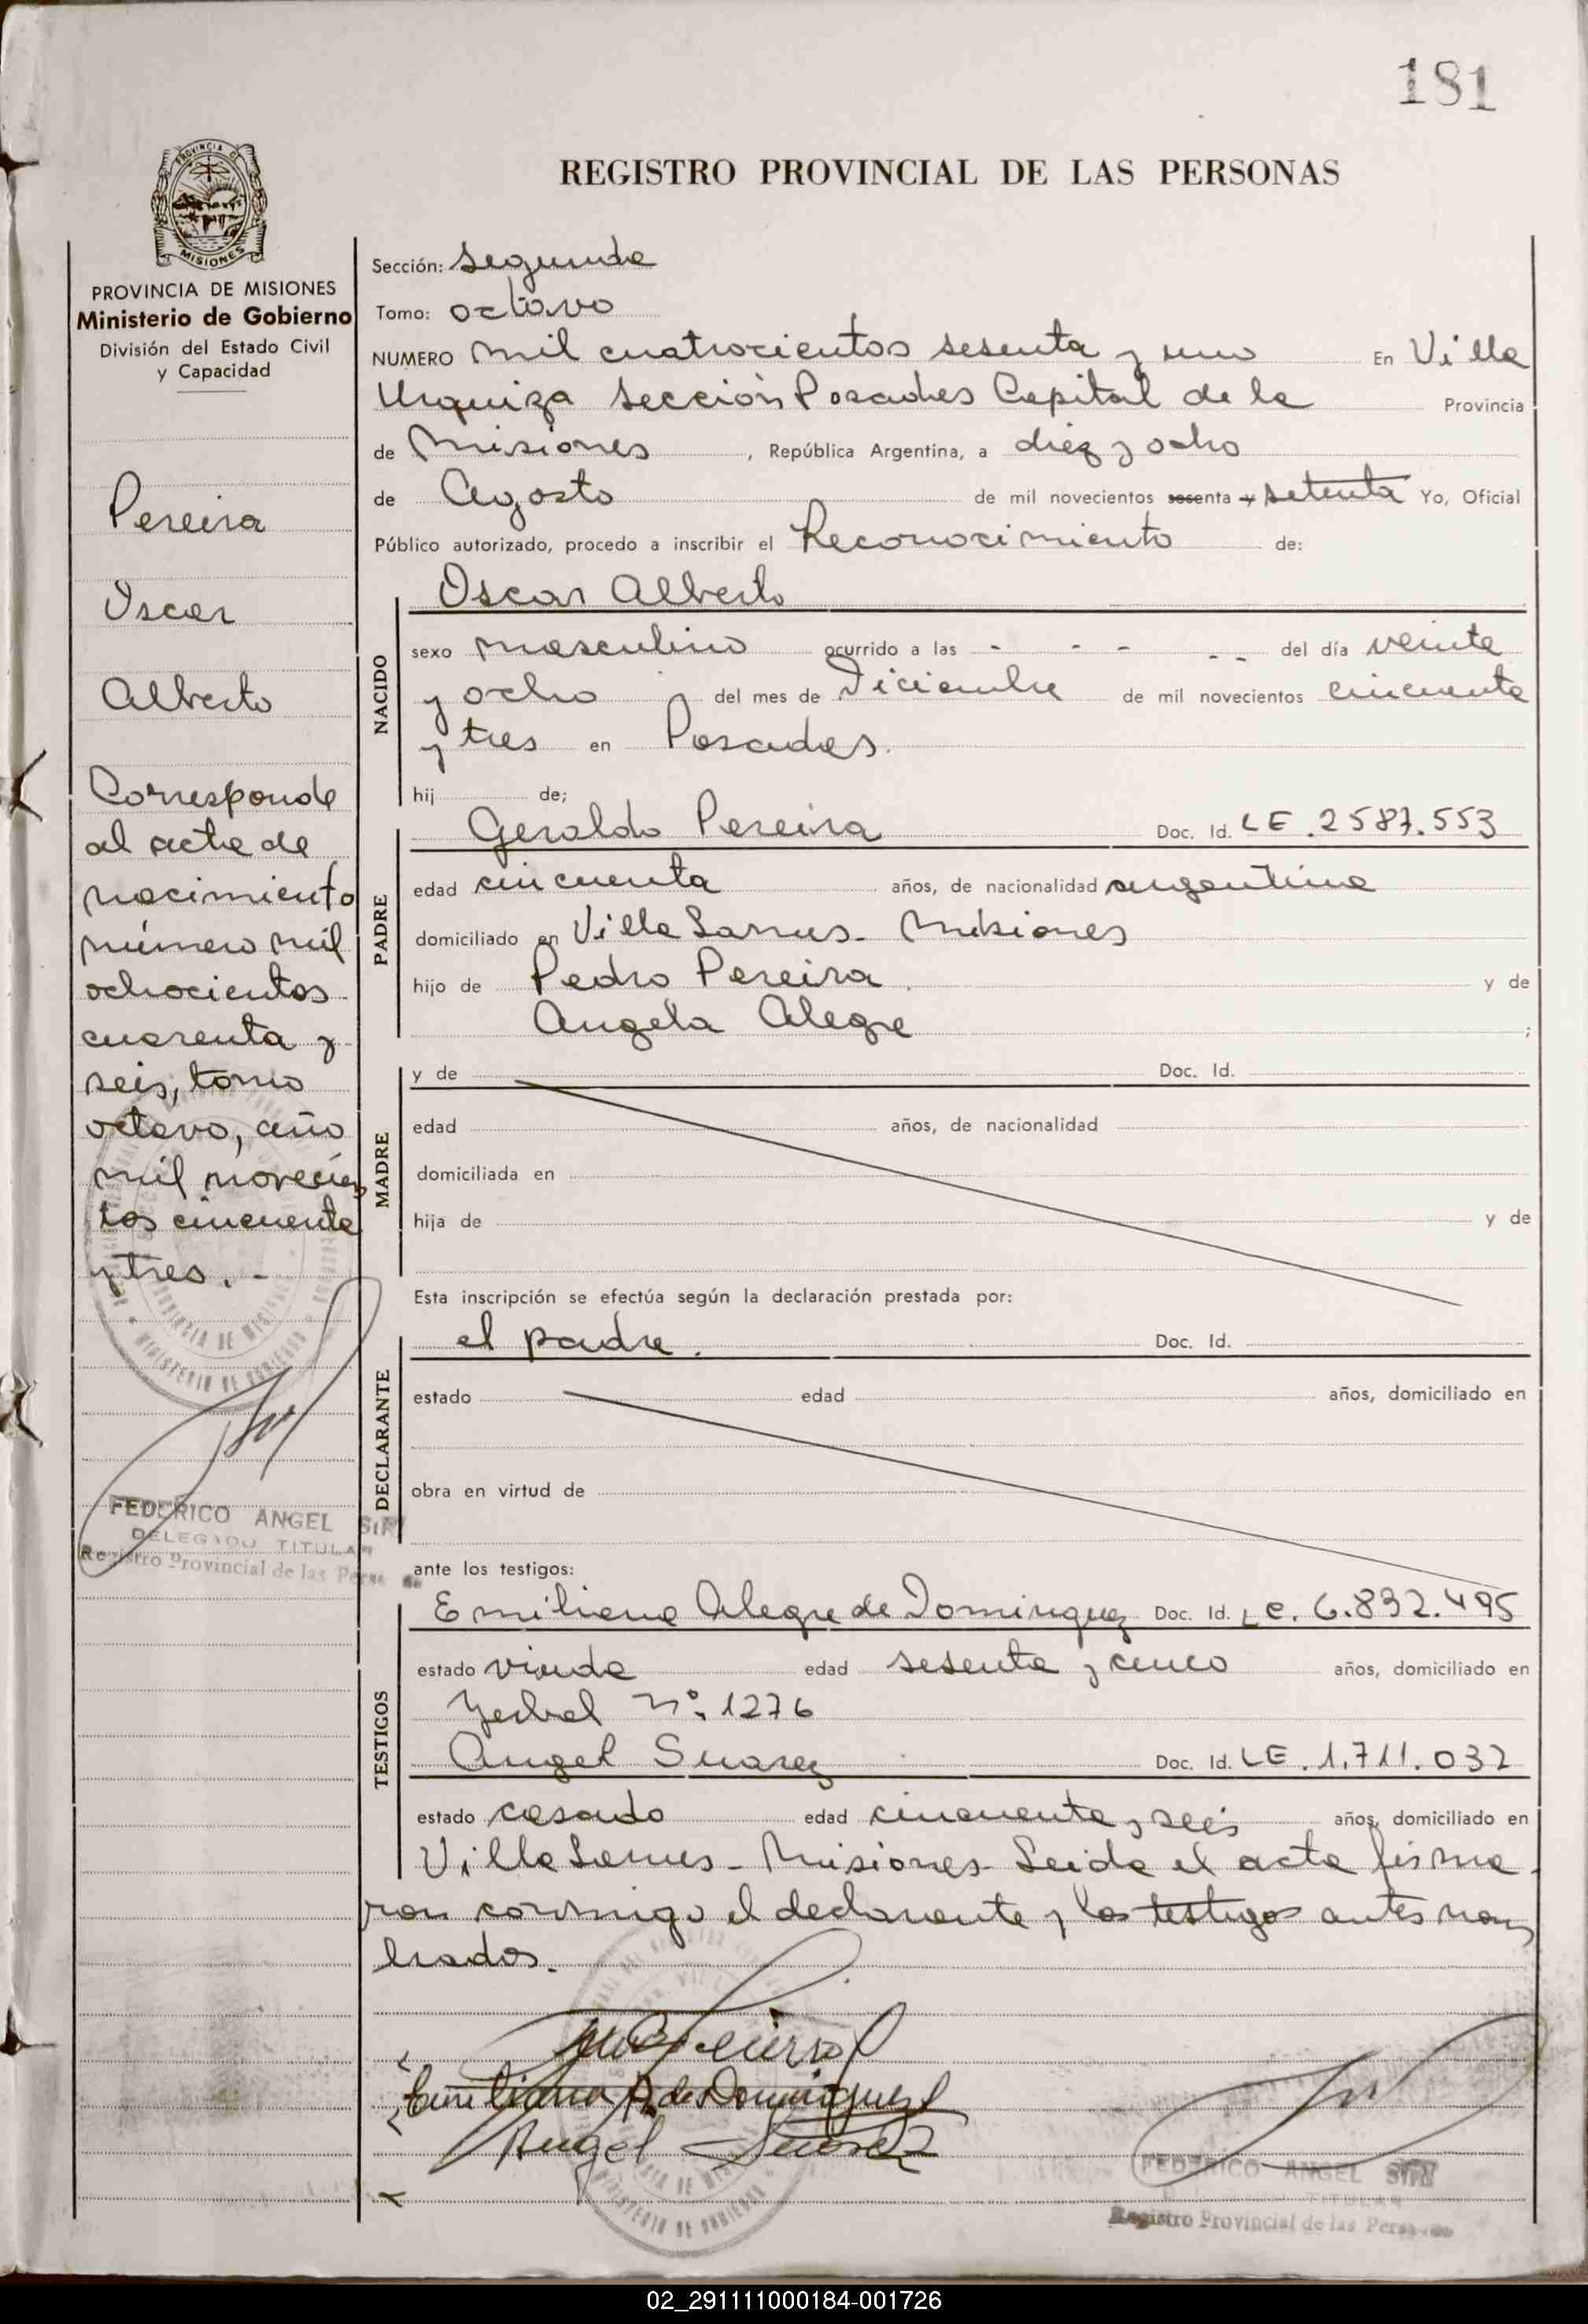 181
REGISTRO PROVINCIAL DE LAS PERSONAS
PROVINCIA DE
MISIONES
PROVINCIA DE MISIONES
Ministerio de Gobierno
División del Estado Civil
y Capacidad
Pereira
Oscar
Alberto
Corresponde
al acta de
nacimiento
número mil
ochocientos
cuarenta y
seis, tomo
octavo, año
mil novecien
tos cincuenta
y tres. -
FEDERICO ANGEL
DELEGADO TITULAR
Registro Provincial de las Perso
Sección: Segunda
Tomo: octavo
NUMERO mil cuatrocientos sesenta y uno En Villa
Urquiza Sección Posadas Capital de la Provincia
de Misiones, República Argentina, a diez y ocho
de Agosto de mil novecientos sesenta y setenta Yo, Oficial
Público autorizado, procedo a inscribir el Reconocimiento de:
NACIDO
Oscar Alberto
sexo masculino ocurrido a las - - - - - del día veinte
y ocho del mes de Diciembre de mil novecientos cincuenta
y tres en Posadas.
hij de;
PADRE
Geraldo Pereira Doc. Id. LE. 2587.553
edad cincuenta años, de nacionalidad argentina
domiciliado en Villa Lanus - Misiones
hijo de Pedro Pereira y de
Angela Alegre ;
MADRE
y de Doc. Id.
edad años, de nacionalidad
domiciliada en
hija de y de
Esta inscripción se efectúa según la declaración prestada por:
DECLARANTE
el padre. Doc. Id.
estado edad años, domiciliado en
obra en virtud de
ante los testigos:
TESTIGOS
Emiliana Alegre de Dominguez Doc. Id. LC. 6.832.495
estado viuda edad sesenta y cinco años, domiciliado en
Yerbal Nº. 1276
Angel Suarez Doc. Id. LE. 1.711.032
estado casado edad cincuenta y seis años, domiciliado en
Villa Lanus - Misiones - Leida el acta firma
ron conmigo el declarante y los testigos antes nom
brados.
Emiliana A. de Dominguez
Angel Suarez
FEDERICO ANGEL
Registro Provincial de las Personas
02_291111000184-001726